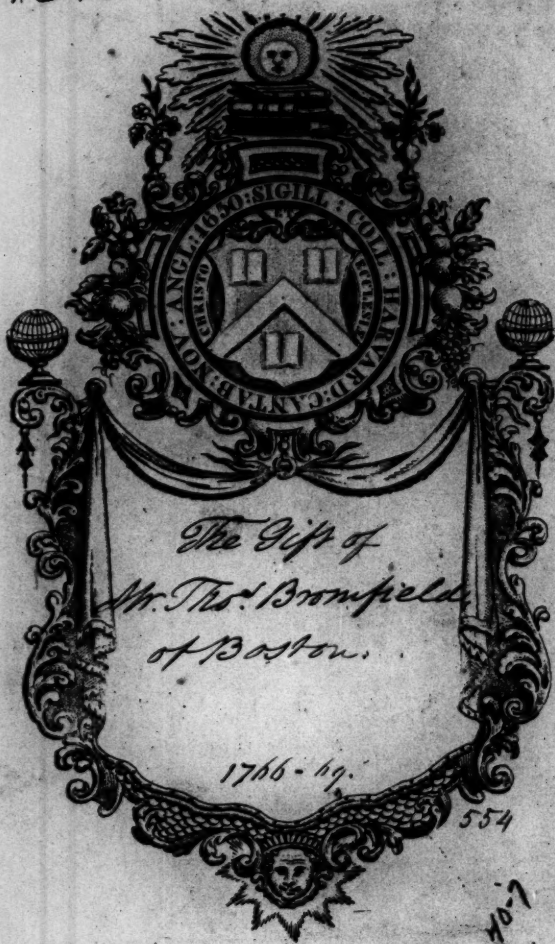 SIGILL : COLL : HARVARD : CANTAB : NOV : ANGL : 1650 :
CHRISTO
ECCLESIÆ
The Gift of
Mr. Thos. Bromfield
of Boston.
1766-69.
554
40-7